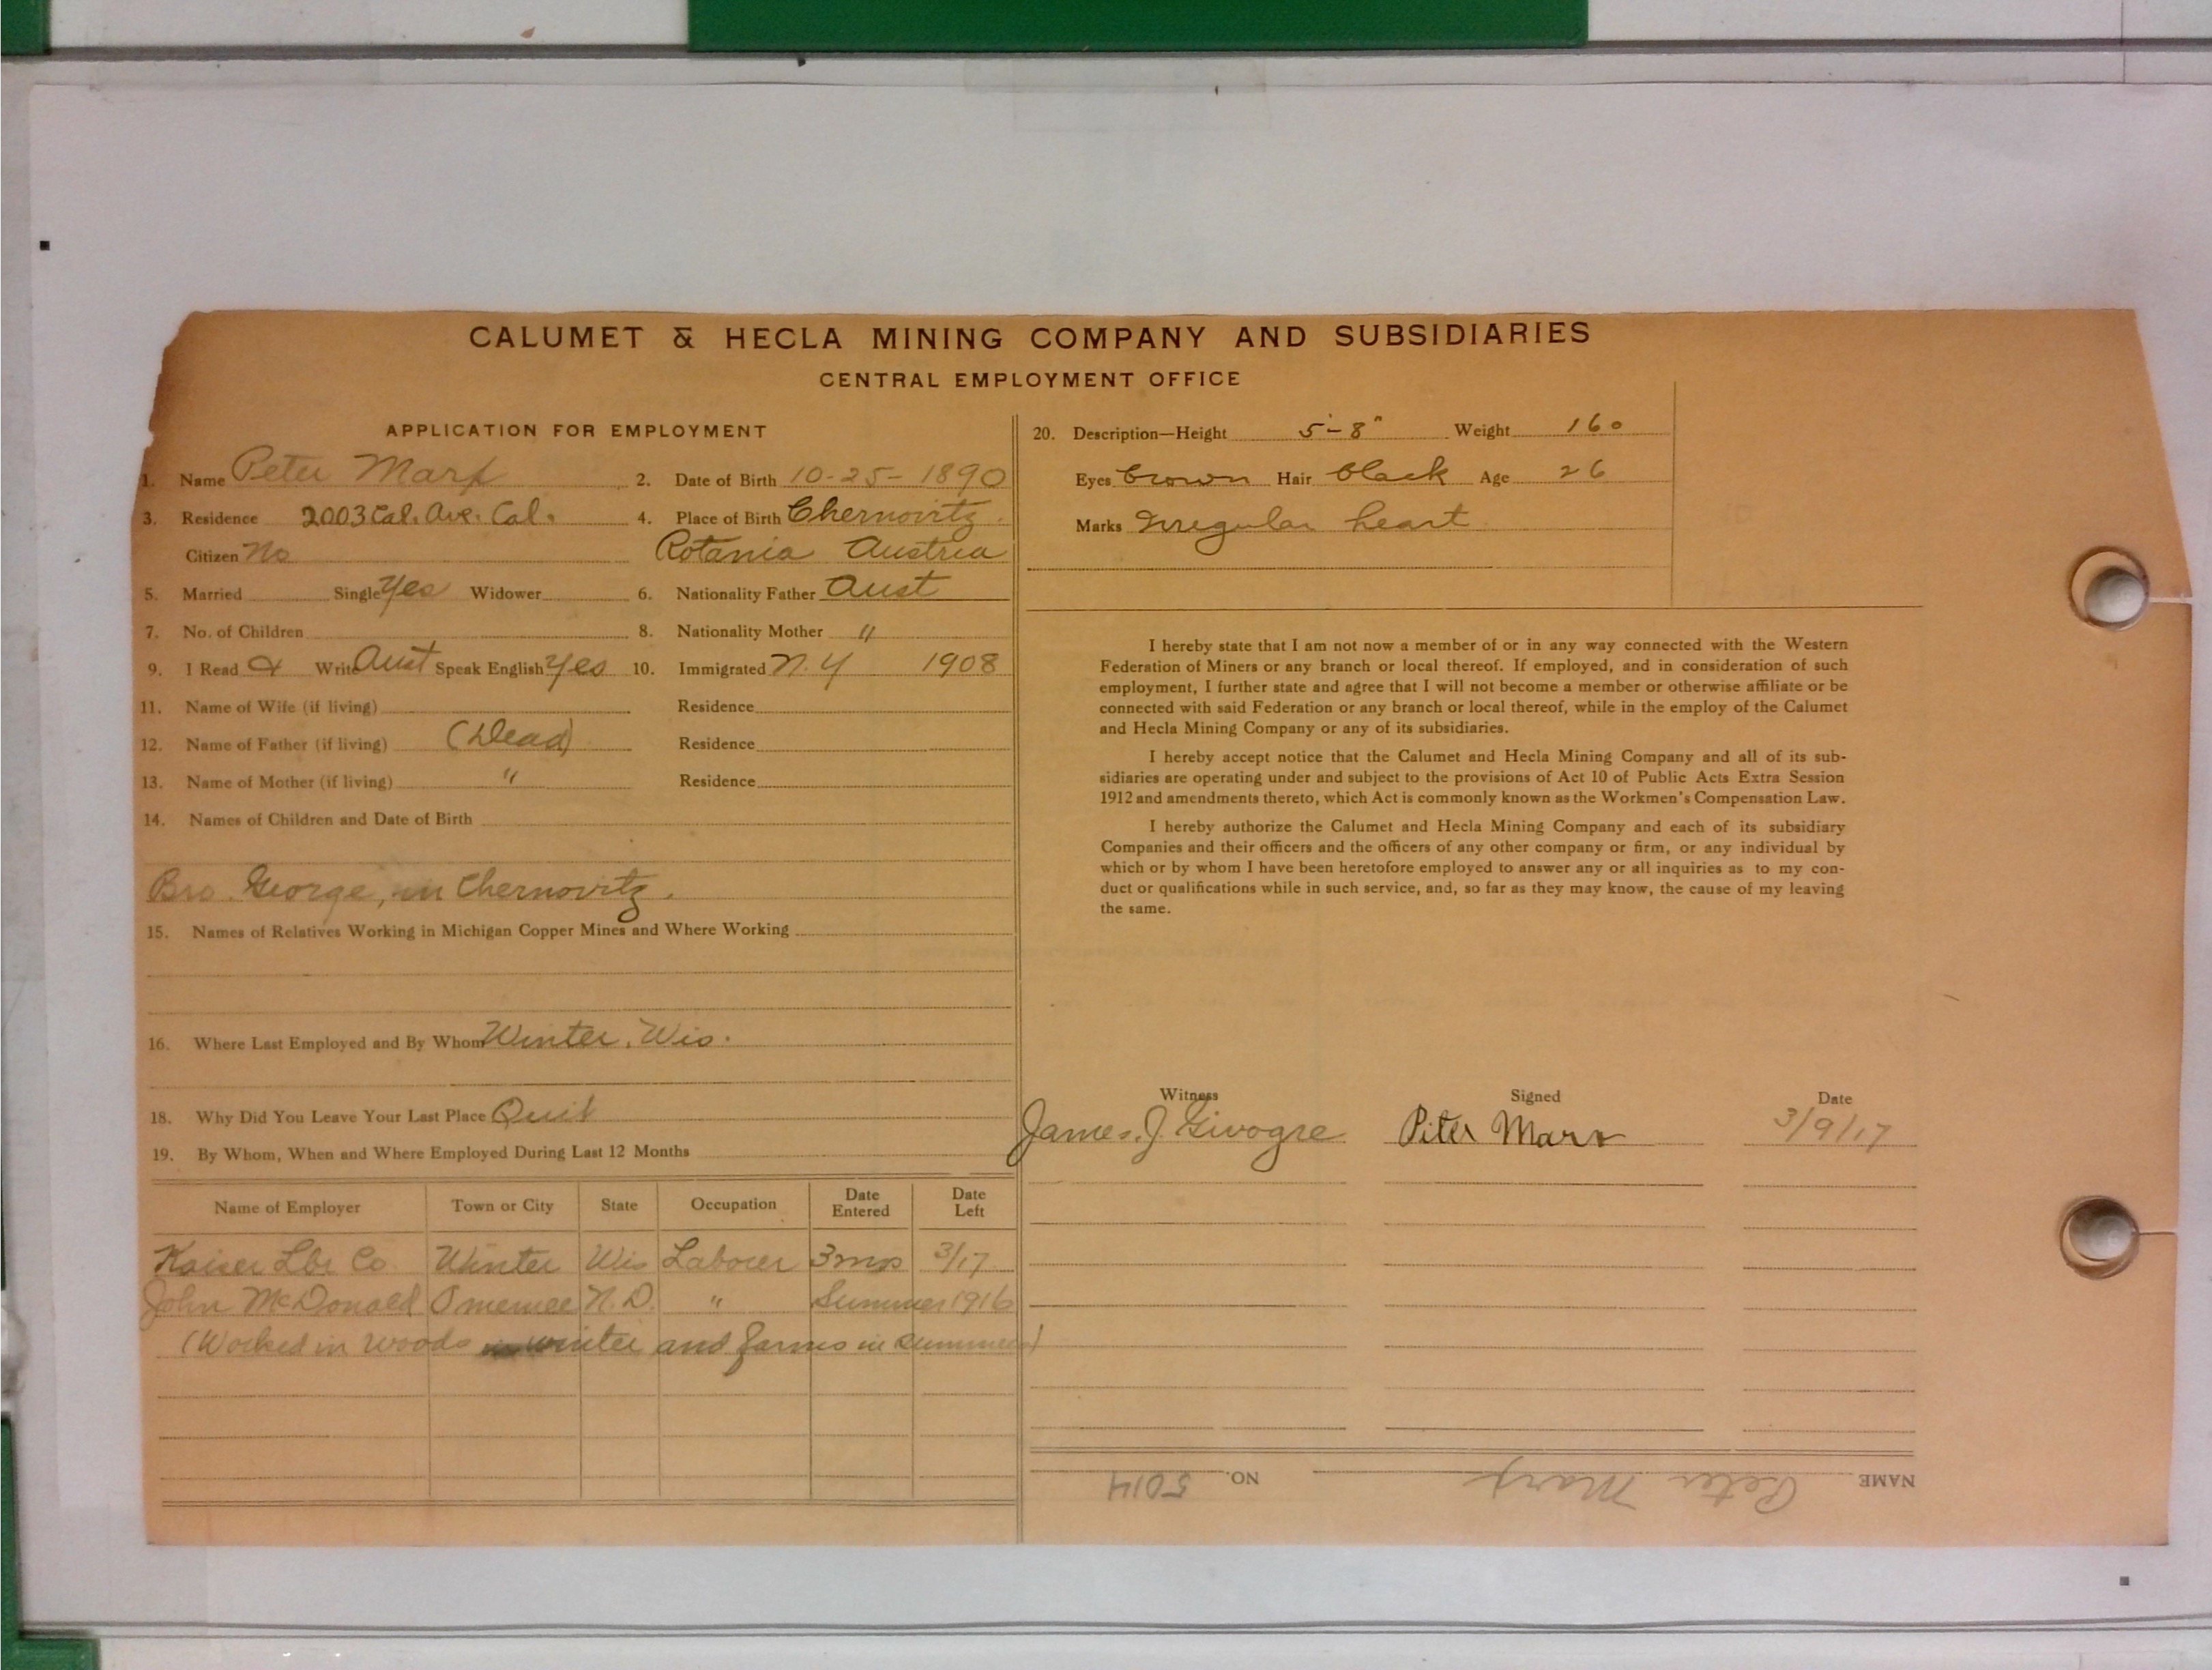 CALUMET & HECLA MINING COMPANY AND SUBSIDIARIES
CENTRAL EMPLOYMENT OFFICE
APPLICATION FOR EMPLOYMENT
1. Name Peter Marx 2. Date of Birth 10-25-1890
3. Residence 2003 Cal. Ave. Cal. 4. Place of Birth Chernovitz.
Citizen No Rotania Austria
5. Married Single Yes Widower 6. Nationality Father Aust
7. No. of Children 8. Nationality Mother "
9. I Read & Write Aust Speak English Yes 10. Immigrated N.Y 1908
11. Name of Wife (if living) Residence
12. Name of Father (if living) (Dead) Residence
13. Name of Mother (if living) " Residence
14. Names of Children and Date of Birth
Bro. George, in Chernovitz.
15. Names of Relatives Working in Michigan Copper Mines and Where Working
16. Where Last Employed and By Whom Winter, Wis.
18. Why Did You Leave Your Last Place Quit
19. By Whom, When and Where Employed During Last 12 Months
Name of Employer Town or City State Occupation Date Entered Date Left
Kaiser Lbr Co. Winter Wis Laborer 3 mos 3/17
John McDonald Omemee N.D. " Summer 1916
(Worked in woods in winter and farms in summers)
20. Description—Height 5-8" Weight 160
Eyes brown Hair black Age 26
Marks Irregular heart
I hereby state that I am not now a member of or in any way connected with the Western
Federation of Miners or any branch or local thereof. If employed, and in consideration of such
employment, I further state and agree that I will not become a member or otherwise affiliate or be
connected with said Federation or any branch or local thereof, while in the employ of the Calumet
and Hecla Mining Company or any of its subsidiaries.
I hereby accept notice that the Calumet and Hecla Mining Company and all of its sub-
sidiaries are operating under and subject to the provisions of Act 10 of Public Acts Extra Session
1912 and amendments thereto, which Act is commonly known as the Workmen's Compensation Law.
I hereby authorize the Calumet and Hecla Mining Company and each of its subsidiary
Companies and their officers and the officers of any other company or firm, or any individual by
which or by whom I have been heretofore employed to answer any or all inquiries as to my con-
duct or qualifications while in such service, and, so far as they may know, the cause of my leaving
the same.
Witness Signed Date
James. J. Givogre Piter Marx 3/9/17
NAME Peter Marx NO. 5014